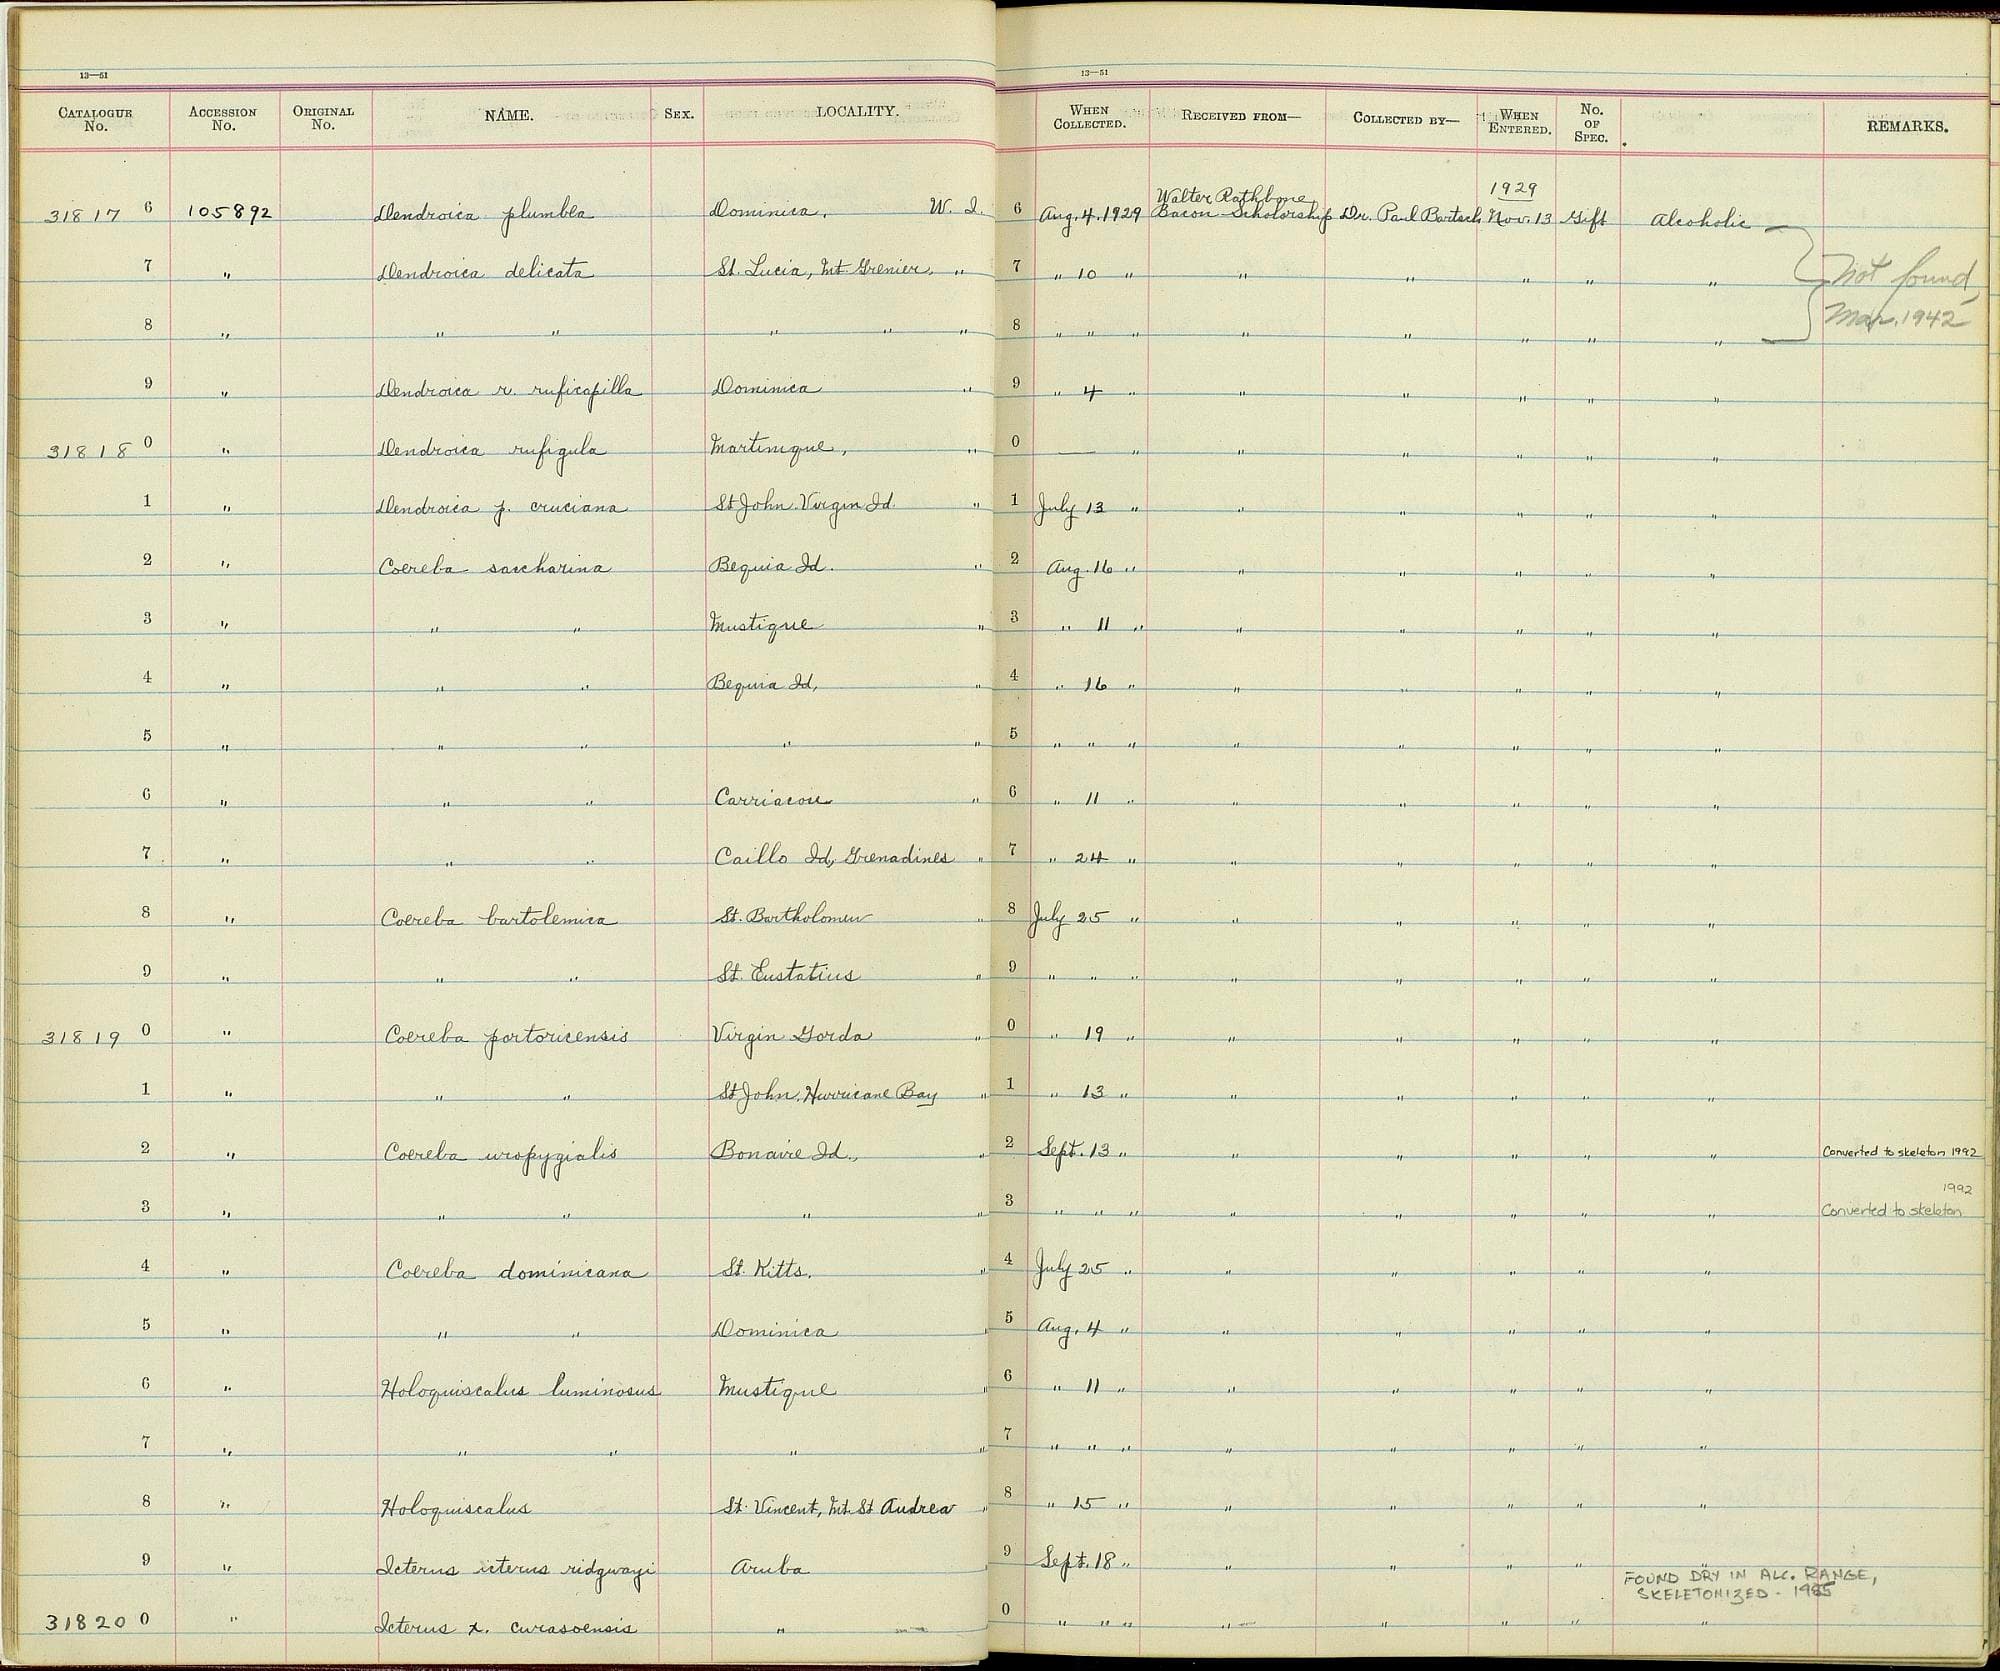 13—51
13—51
CATALOGUE No. ACCESSION No. ORIGINAL No. NAME. SEX. LOCALITY. WHEN COLLECTED. RECEIVED FROM— COLLECTED BY— WHEN ENTERED. No. OF SPEC. REMARKS.
1929
31817 6 105892 Dendroica plumbea Dominica, W. I. 6 Aug. 4. 1929 Walter Rathbone Bacon Scholorship Dr. Paul Bartsch Nov. 13 Gift Alcoholic
7 " Dendroica delicata St. Lucia, Mt. Grenier, " 7 " 10 " " " " " " Not found,
8 " " " " " " 8 " " " " " " " " Mar. 1942
9 " Dendroica r. ruficapilla Dominica " 9 " 4 " " " " " "
31818 0 " Dendroica rufigula Martinique, " 0 — " " " " " "
1 " Dendroica p. cruciana St John Virgin Id. " 1 July 13 " " " " " "
2 " Coereba saccharina Bequia Id. " 2 Aug. 16 " " " " " "
3 " " " Mustique " 3 " 11 " " " " " "
4 " " " Bequia Id, " 4 " 16 " " " " " "
5 " " " " " 5 " " " " " " " "
6 " " " Carriacou " 6 " 11 " " " " " "
7 " " " Caillo Id, Grenadines " 7 " 24 " " " " " "
8 " Coereba bartolemica St. Bartholomew " 8 July 25 " " " " " "
9 " " " St. Eustatius " 9 " " " " " " " "
31819 0 " Coereba portoricensis Virgin Gorda " 0 " 19 " " " " " "
1 " " " St John, Hurricane Bay " 1 " 13 " " " " " "
2 " Coereba uropygialis Bonaire Id., " 2 Sept. 13 " " " " " " Converted to skeleton 1992
3 " " " " " 3 " " " " " " " " Converted to skeleton 1992
4 " Coereba dominicana St. Kitts, " 4 July 25 " " " " " "
5 " " " Dominica " 5 Aug. 4 " " " " " "
6 " Holoquiscalus luminosus Mustique " 6 " 11 " " " " " "
7 " " " " " 7 " " " " " " " "
8 " Holoquiscalus St. Vincent, Mt. St Andrew " 8 " 15 " " " " " "
9 " Icterus icterus ridgwayi Aruba " 9 Sept. 18 " " " " " "
FOUND DRY IN ALC. RANGE,
SKELETONIZED - 1985
31820 0 " Icterus x. curasoensis " " 0 " " " " " " " "